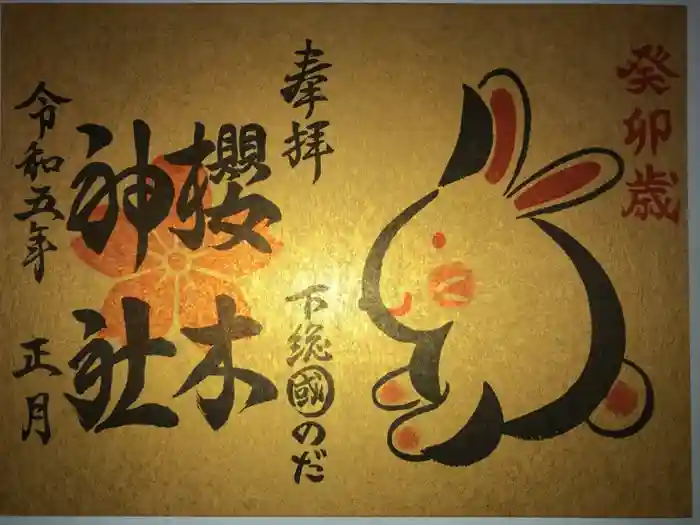 癸卯歳
奉拝
下総國のだ
櫻木
神社
令和五年 正月